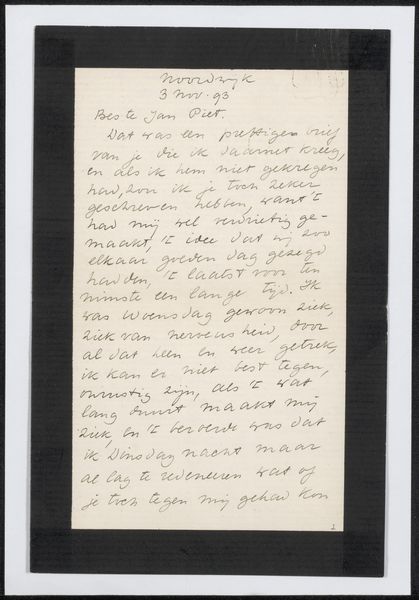 Noordwijk
3 Nov. 93
Beste Jan Piet.
Dat was een prettigen brief
van je die ik daarnet kreeg,
en als ik hem niet gekregen
had, zou ik je toch zeker
geschreven hebben, want 't
had mij wel verdrietig ge-
maakt, 't idee dat wij zoo
elkaar goeden dag gezegd
hadden, 't laatst voor ten
minste een lange tijd. Ik
was Woensdag gewoon ziek,
ziek van nerveusheid, door
al dat heen en weer getrek,
ik kan er niet best tegen,
onrustig zijn, als 't wat
lang duurt maakt mij
ziek, en 't beroerde was dat
ik Dinsdag nacht maar
al lag te redeneeren wat of
je toch tegen mij gehad kon